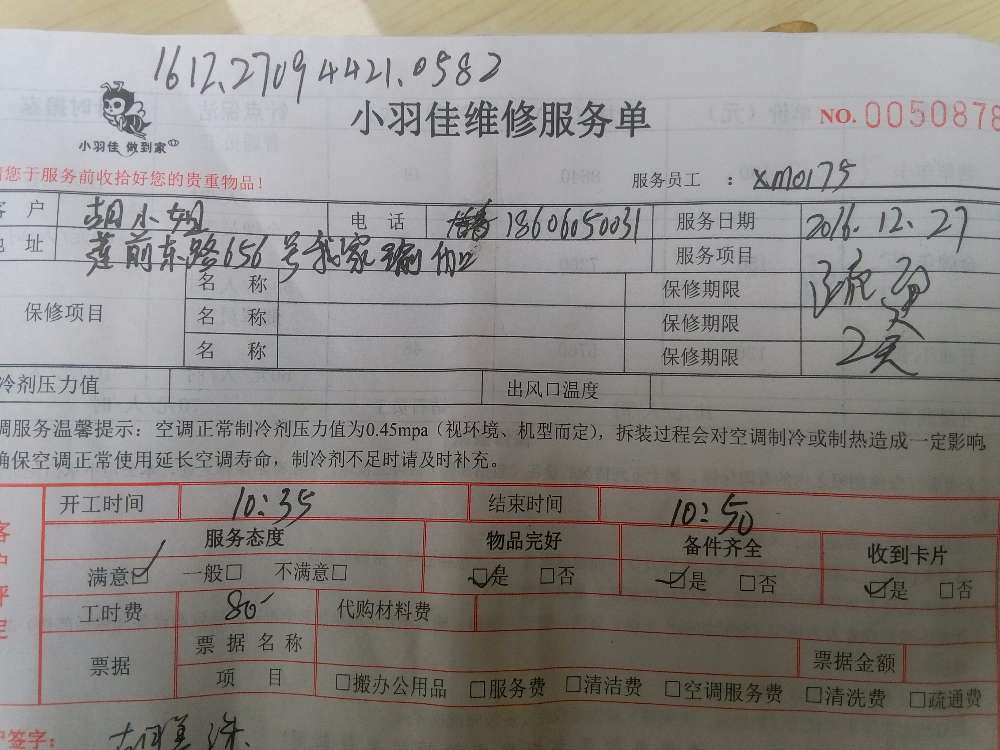 1612.27094421.0582
小羽佳 做到家
小羽佳维修服务单 NO. 0050878
您于服务前收拾好您的贵重物品! 服务员工 : xm0175
客 户 胡小姐 电 话 18606050031 服务日期 2016.12.27
地 址 莲前东路656号我家 服务项目
保修项目 名 称 保修期限
名 称 保修期限
名 称 保修期限 2天
冷剂压力值 出风口温度
调服务温馨提示: 空调正常制冷剂压力值为0.45mpa(视环境、机型而定), 拆装过程会对空调制冷或制热造成一定影响,
确保空调正常使用延长空调寿命, 制冷剂不足时请及时补充。
客户评定
开工时间 10:35 结束时间 10:50
服务态度 物品完好 备件齐全 收到卡片
满意☑ 一般□ 不满意□ ☑是 □否 ☑是 □否 ☑是 □否
工时费 80- 代购材料费
票据 票据名称 票据金额
项 目 □搬办公用品 □服务费 □清洁费 □空调服务费 □清洗费 □疏通费
户签字: